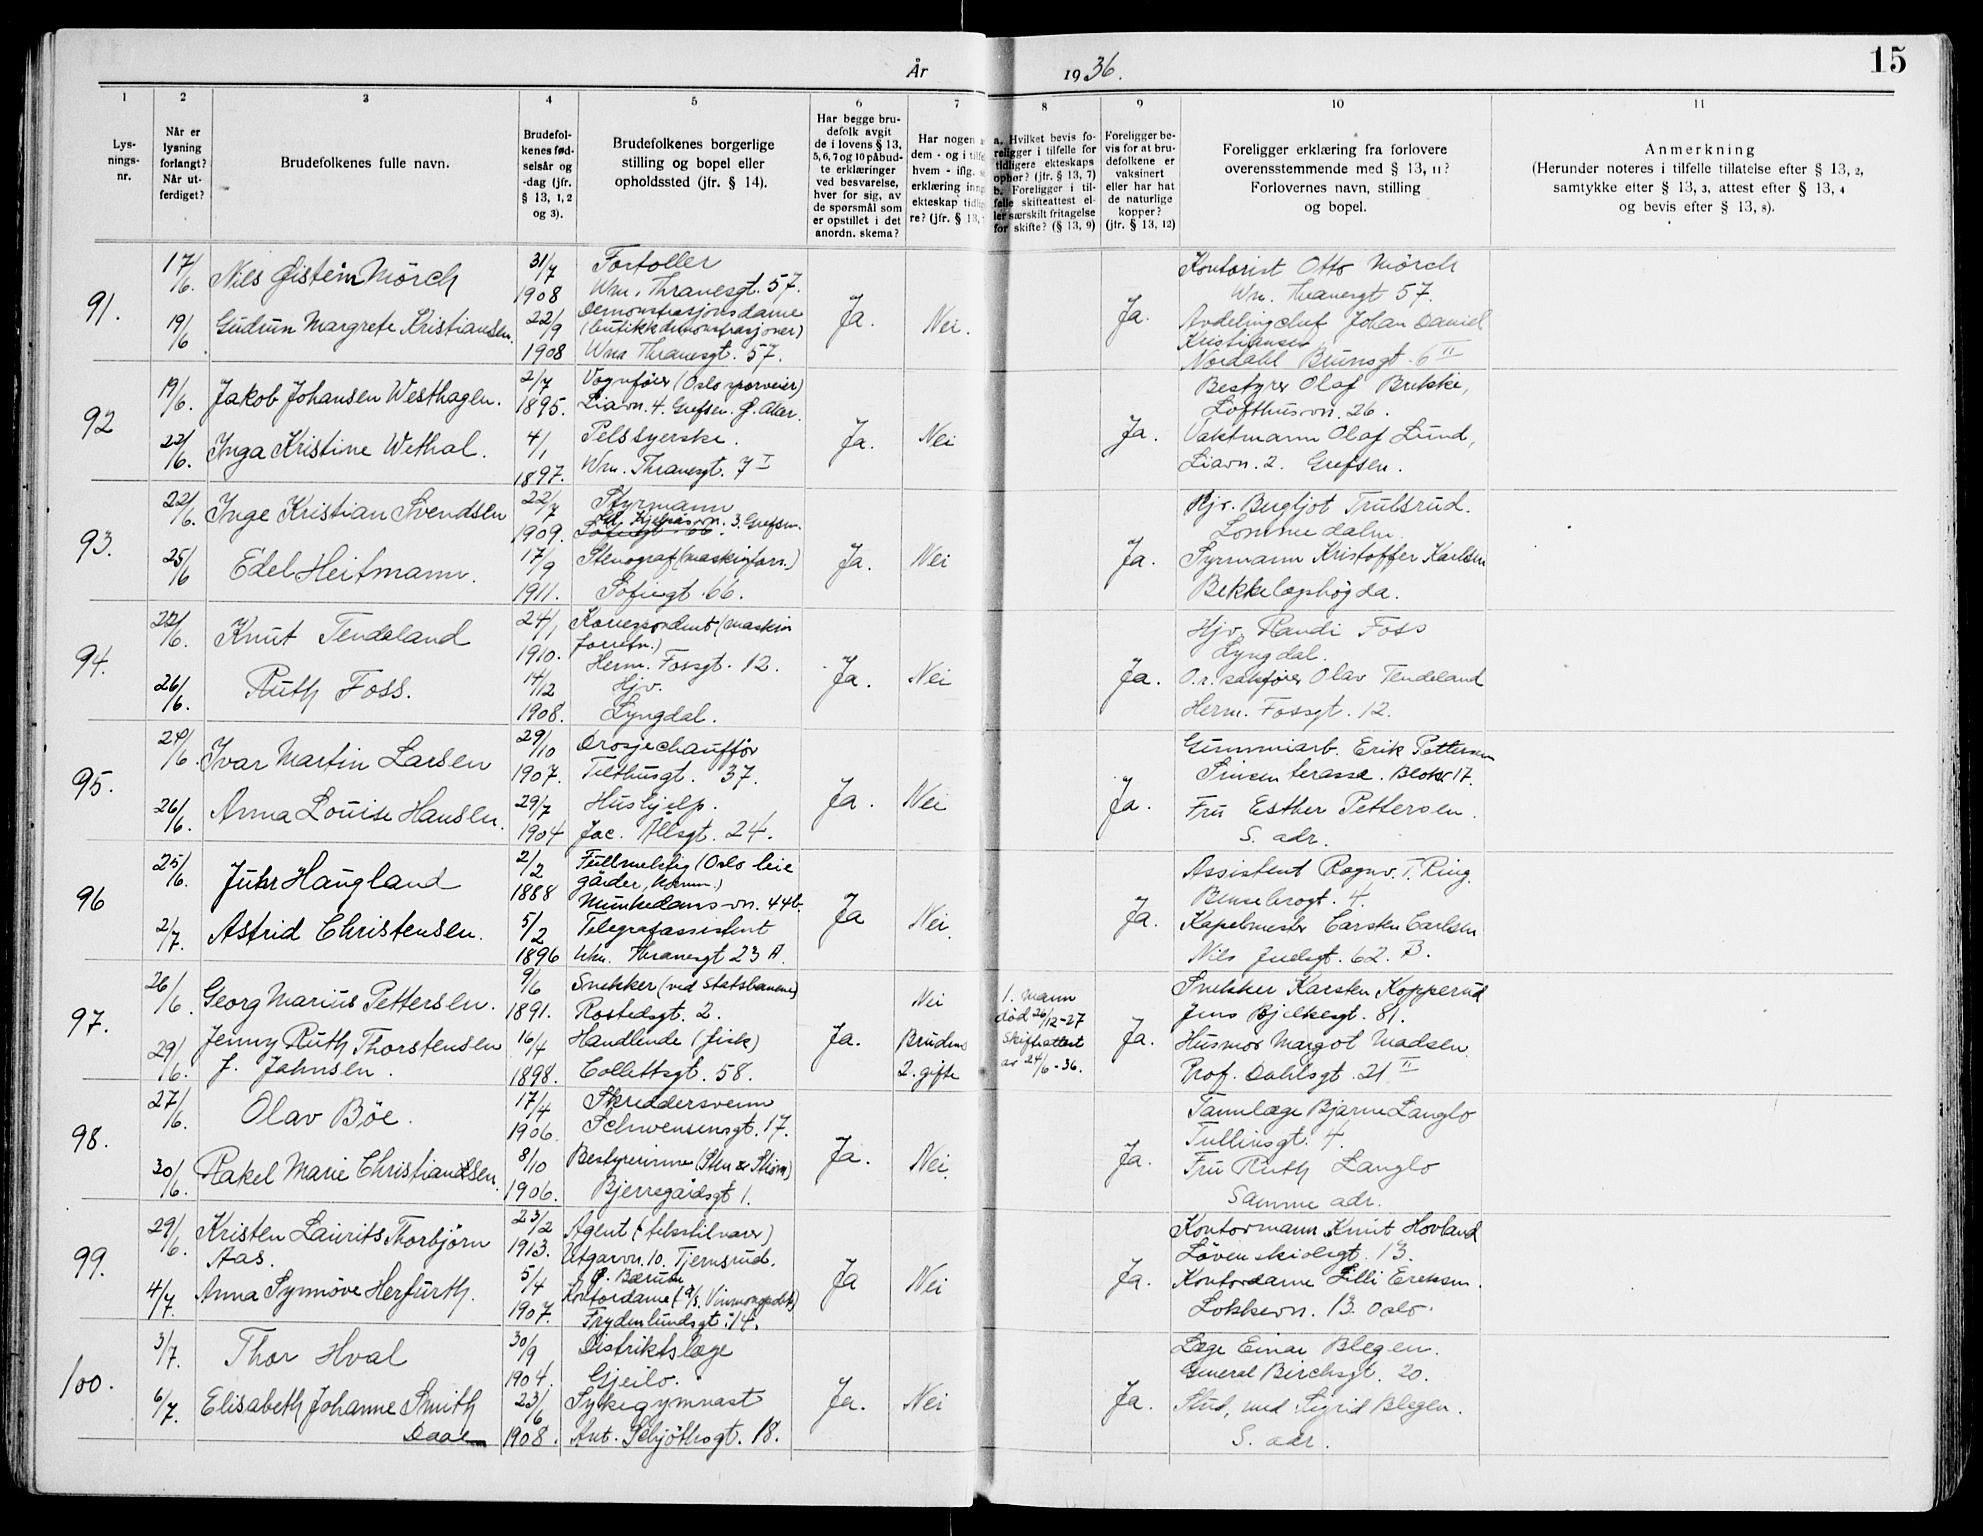 År 1936.
15
1 2 3 4 5 6 7 8 9 10 11
Lys-
nings-
nr.
Når er
lysning
forlangt?
Når ut-
ferdiget?
Brudefolkenes fulle navn.
Brudefol-
kenes fød-
selsår og
-dag (jfr.
§ 13, 1, 2
og 3).
Brudefolkenes borgerlige
stilling og bopel eller
opholdssted (jfr. § 14).
Har begge bru-
defolk avgit
de i lovens § 13,
5, 6, 7 og 10 påbud-
te erklæringer
ved besvarelse,
hver for sig, av
de spørsmål som
er opstillet i det
anordn. skema?
Har nogen
dem - og i tilfe
hvem - iflg.
erklæring inng
ekteskap tidlig
re? (jfr. § 13,
a. Hvilket bevis fo-
religger i tilfelle for
tidligere ekteskaps
ophør? (jfr. § 13, 7)
b. Foreligger i til-
felle skifteattest el-
ler særskilt fritagelse
for skifte? (§ 13, 9)
Foreligger be-
vis for at bru-
defolkene er
vaksinert
eller har hat
de naturlige
kopper?
(jfr. § 13, 12)
Foreligger erklæring fra forlovere
overensstemmende med § 13, 11?
Forlovernes navn, stilling
og bopel.
Anmerkning
(Herunder noteres i tilfelle tillatelse efter § 13, 2,
samtykke efter § 13, 3, attest efter § 13, 4
og bevis efter § 13, 8).
91.
17/6.
19/6
Nils Øistein Mörch
Gudrun Margrete Kristiansen.
31/7
1908
22/9
1908
Fortoller
Wm. Thranesgt. 57.
Demonstrasjonsdame
(butikkdemonstrasjoner)
Wm Thranesgt. 57.
Ja.
Nei.
Ja.
Kontorist Otto Mörch
Wm. Thranesgt 57.
Avdelingchef Johan Daniel
Kristiansen
Nordahl Brunsgt. 6 II
92
19/6.
22/6.
Jakob Johansen Westhagen.
Inga Kristine Wethal.
2/7
1895.
4/1
1897.
Vognfører (Oslo sporveier)
Liavn. 4. Grefsen. Ø. Aker.
Pelssyerske.
Wm. Thranesgt. 7 I
Ja.
Nei
Ja.
Bestyrer Olaf Brekke,
Lofthusvn. 26.
Vaktmann Olaf Lund,
Liavn. 2. Grefsen.
93.
22/6.
25/6
Inge Kristian Svendsen
Edel Heitmann.
22/7
1909.
17/9
1911.
Styrmann
Kjelsåsvn. 3. Grefsen.
Sofiesgt 66.
Stenograf (maskinforr.)
Sofiegt. 66.
Ja.
Nei
Ja.
Hjv. Bergljot Trulsrud.
Lommedalen.
Styrmann Kristoffer Karlsen
Bekkelagshøgda.
94.
22/6.
26/6.
Knut Tendeland
Ruth Foss.
24/1
1910.
14/12
1908.
Korrespondent (maskin
forretn.)
Herm. Fossgt. 12.
Hjv.
Lyngdal.
Ja.
Nei
Ja.
Hjv. Randi Foss
Lyngdal.
O.r. sakfører Olav Tendeland
Herm. Fossgt. 12.
95.
24/6.
26/6.
Ivar Martin Larsen
Anna Louise Hansen.
29/10
1907.
29/7
1904
Drosjechauffør
Tilthusgt. 37.
Hushjelp.
Jac. Ållsgt. 24.
Ja.
Nei
Ja.
Gummiarb. Erik Pettersen
Sinsen terasse. Blokk 17.
Fru Esther Pettersen.
S. adr.
96
25/6.
2/7.
Juhr Haugland
Astrid Christensen.
2/2
1888
5/2
1896
Fullmektig (Oslo leie
gårder, komm.)
Munkedamsvn. 44b.
Telegrafassistent
Wm. Thranesgt 23 A.
Ja
Nei.
Ja.
Assistent Ragnv. T. Ring.
Bensebrogt. 4.
Kapelmester Carsten Carlsen
Nils Juelsgt. 62. B.
97.
26/6.
29/6.
Georg Marius Pettersen.
Jenny Ruth Thorstensen
f. Jahnsen.
9/6
1891.
16/4
1898.
Snekker (ved Statsbanene)
Rostedsgt. 2.
Handlende (fisk)
Collettsgt. 58.
Ja.
Nei
Brudens
2. gifte
1. mann
død 26/12-27
Skifteattest
av 24/6-36.
Ja.
Snekker Karsten Kopperud
Jens Bjelkesgt. 81.
Husmor Margot Madsen.
Prof. Dahlsgt. 21 II
98.
27/6.
30/6.
Olav Böe.
Rakel Marie Christiandsen.
17/4
1906.
8/10
1906.
Skreddersvenn
Schwensensgt. 17.
Bestyrerinne (Steen & Strøm)
Bjerregårdsgt 1.
Ja.
Nei.
Ja.
Tannlæge Bjarne Langlo
Tullinsgt. 4.
Fru Ruth Langlo
Samme adr.
99.
29/6.
4/7.
Kristen Laurits Thorbjörn
Aas.
Anna Synnöve Herfurth.
23/2
1913.
5/4
1907.
Agent (tekstilvarer)
Utgarvn. 10. Tjernsrud.
Ø. Bærum
Kontordame (a/s. Vinmonopolet)
Frydenlundsgt. 14.
Ja
Nei
Ja.
Kontormann Knut Hovland
Løvenskioldsgt. 13.
Kontordame Lilli Eriksen.
Løkkevn. 13. Oslo.
100.
3/7.
6/7.
Thor Hval
Elisabeth Johanne Smith
Daae
30/9
1904.
23/6
1908.
Distriktslæge
Gjeilo.
Sykegymnast
Ant. Schjøthsgt. 18.
Ja.
Nei
Ja.
Læge Einar Blegen.
General Birchsgt. 20.
Stud. med Sigrid Blegen.
S. adr.